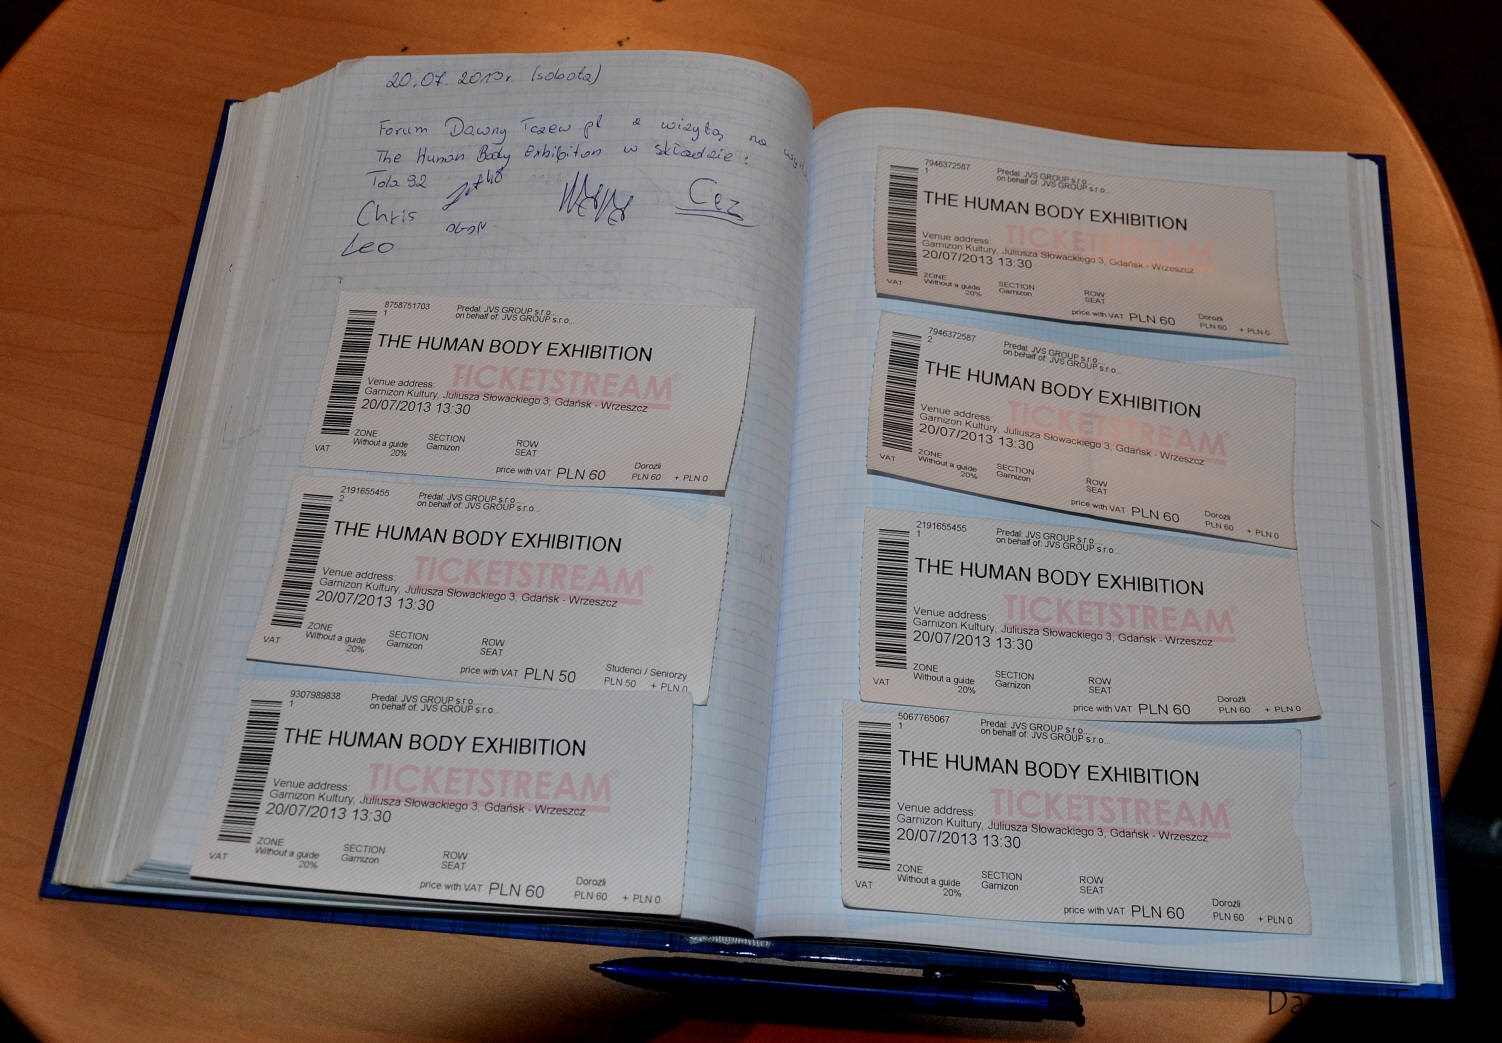 20.07.2013r. (sobota)
Forum Dawny Tczew.pl z wizytą na
The Human Body Exhibition w składzie:
Tola 92
Cez
Chris
Leo
8758751703
1
Predal: JVS GROUP s.r.o...
on behalf of: JVS GROUP s.r.o...
THE HUMAN BODY EXHIBITION
TICKETSTREAM®
Venue address:
Garnizon Kultury, Juliusza Słowackiego 3, Gdańsk - Wrzeszcz
20/07/2013 13:30
ZONE SECTION ROW
Without a guide Garnizon SEAT
VAT 20%
price with VAT PLN 60
Dorośli
PLN 60 + PLN 0
2191655455
2
Predal: JVS GROUP s.r.o...
on behalf of: JVS GROUP s.r.o...
THE HUMAN BODY EXHIBITION
TICKETSTREAM®
Venue address:
Garnizon Kultury, Juliusza Słowackiego 3, Gdańsk - Wrzeszcz
20/07/2013 13:30
ZONE SECTION ROW
Without a guide Garnizon SEAT
VAT 20%
price with VAT PLN 50
Studenci / Seniorzy
PLN 50 + PLN 0
9307989838
1
Predal: JVS GROUP s.r.o...
on behalf of: JVS GROUP s.r.o...
THE HUMAN BODY EXHIBITION
TICKETSTREAM®
Venue address:
Garnizon Kultury, Juliusza Słowackiego 3, Gdańsk - Wrzeszcz
20/07/2013 13:30
ZONE SECTION ROW
Without a guide Garnizon SEAT
VAT 20%
price with VAT PLN 60
Dorośli
PLN 60 + PLN 0
7946372587
1
Predal: JVS GROUP s.r.o...
on behalf of: JVS GROUP s.r.o...
THE HUMAN BODY EXHIBITION
TICKETSTREAM
Venue address:
Garnizon Kultury, Juliusza Słowackiego 3, Gdańsk - Wrzeszcz
20/07/2013 13:30
ZONE SECTION ROW
Without a guide Garnizon SEAT
VAT 20%
price with VAT PLN 60
Dorośli
PLN 60 + PLN 0
7946372587
2
Predal: JVS GROUP s.r.o...
on behalf of: JVS GROUP s.r.o...
THE HUMAN BODY EXHIBITION
TICKETSTREAM
Venue address:
Garnizon Kultury, Juliusza Słowackiego 3, Gdańsk - Wrzeszcz
20/07/2013 13:30
ZONE SECTION ROW
Without a guide Garnizon SEAT
VAT 20%
price with VAT PLN 60
Dorośli
PLN 60 + PLN 0
2191655455
1
Predal: JVS GROUP s.r.o...
on behalf of: JVS GROUP s.r.o...
THE HUMAN BODY EXHIBITION
TICKETSTREAM®
Venue address:
Garnizon Kultury, Juliusza Słowackiego 3, Gdańsk - Wrzeszcz
20/07/2013 13:30
ZONE SECTION ROW
Without a guide Garnizon SEAT
VAT 20%
price with VAT PLN 60
Dorośli
PLN 60 + PLN 0
5067765067
1
Predal: JVS GROUP s.r.o...
on behalf of: JVS GROUP s.r.o...
THE HUMAN BODY EXHIBITION
TICKETSTREAM®
Venue address:
Garnizon Kultury, Juliusza Słowackiego 3, Gdańsk - Wrzeszcz
20/07/2013 13:30
ZONE SECTION ROW
Without a guide Garnizon SEAT
VAT 20%
price with VAT PLN 60
Dorośli
PLN 60 + PLN 0